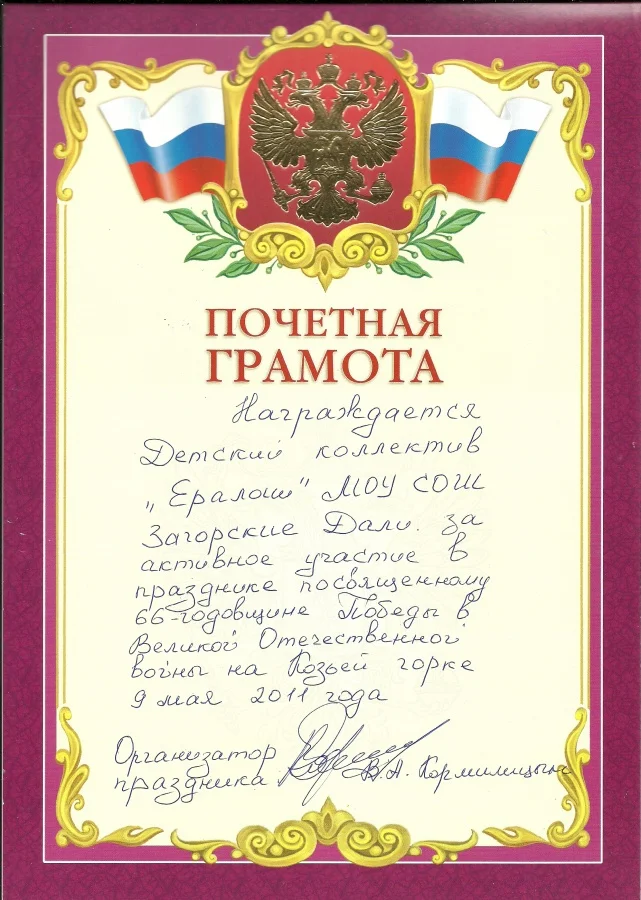 ПОЧЕТНАЯ
ГРАМОТА
Награждается
Детский коллектив
„Ералаш" МОУ СОШ
Загорские Дали. за
активное участие в
празднике посвященному
66-годовщине Победы в
Великой Отечественной
войны на Козьей горке
9 мая 2011 года
Организатор
праздника В.А. Кормилицына